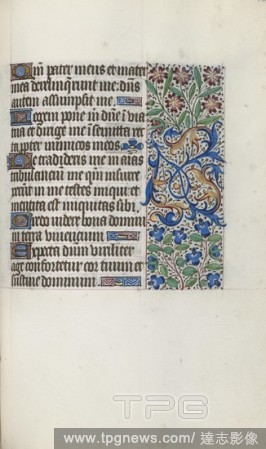 Qm̄ pater meus et mater
mea dereliq̄runt me: dn̄s
autem assumpsit me.
Legem pone m̄ dn̄e ī via
tua et dirige me ī semitā rectā
ꝓpter inimicos meos.
Ne tradideris me in aīas
tribulantiū me qm̄ insurre
xerūt in me testes iniqui et
mentita est iniquitas sibi.
Credo videre bona domini
in terra viuentium.
Expecta dn̄m viriliter
age confortetur cor tuum et
sustine dominum.
TPG
www.tpgnews.com／達志影像